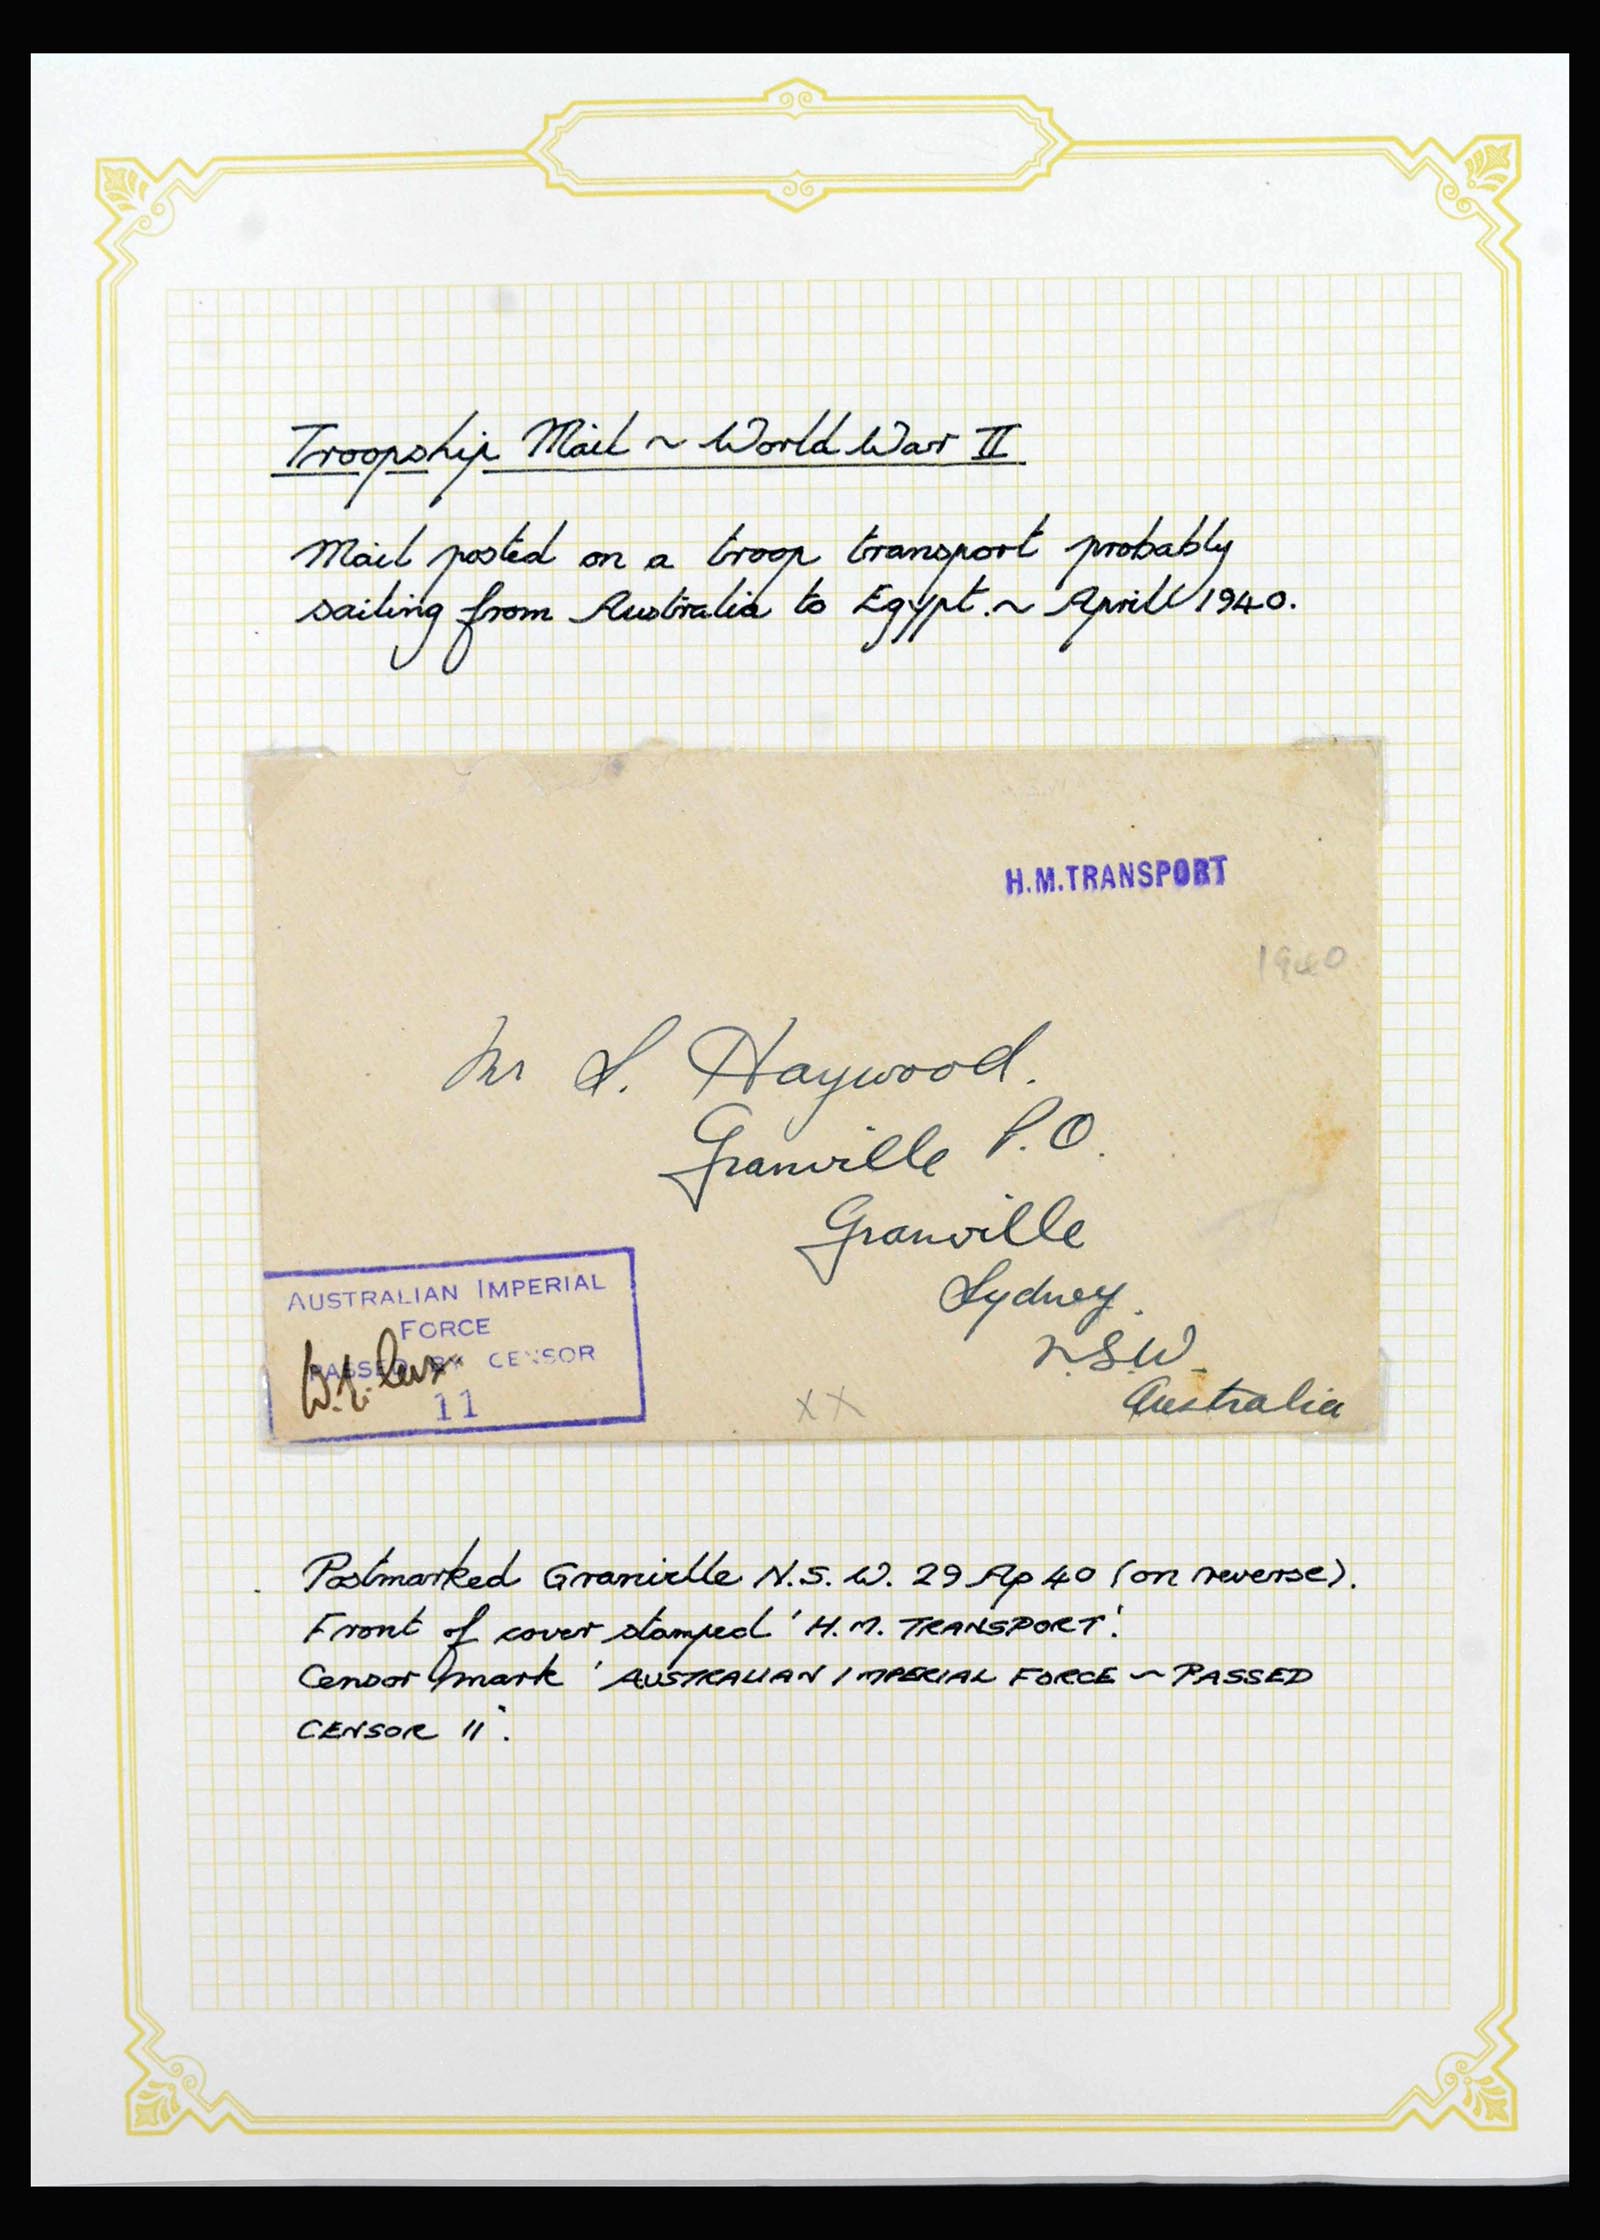 Troopship Mail ~ World War II
Mail posted on a troop transport probably
sailing from Australia to Egypt. ~ April 1940.
H.M.TRANSPORT
1940
Mr S. Haywood.
Granville P.O.
Granville
Sydney.
N.S.W.
Australia
AUSTRALIAN IMPERIAL
FORCE
PASSED BY CENSOR
11
XX
Postmarked Granville N.S.W. 29 Ap 40 (on reverse).
Front of cover stamped 'H.M. TRANSPORT'.
Censor mark 'AUSTRALIAN IMPERIAL FORCE ~ PASSED
CENSOR 11'.